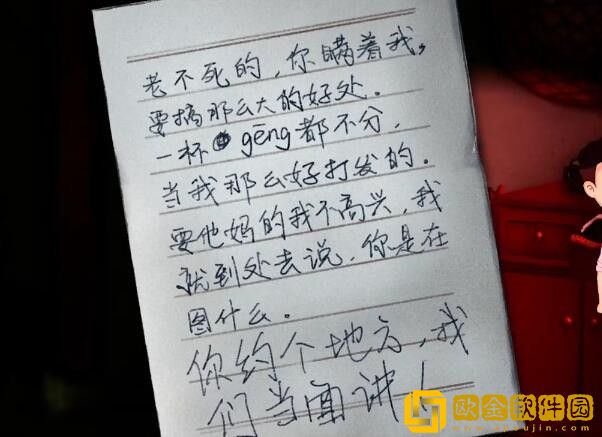 老不死的，你瞒着我，
要搞那么大的好处。
一杯 gēng都不分，
当我那么好打发的。
要他妈的我不高兴，我
就到处去说，你是在
图什么。
你约个地方，我
们当面讲！
欧金软件园